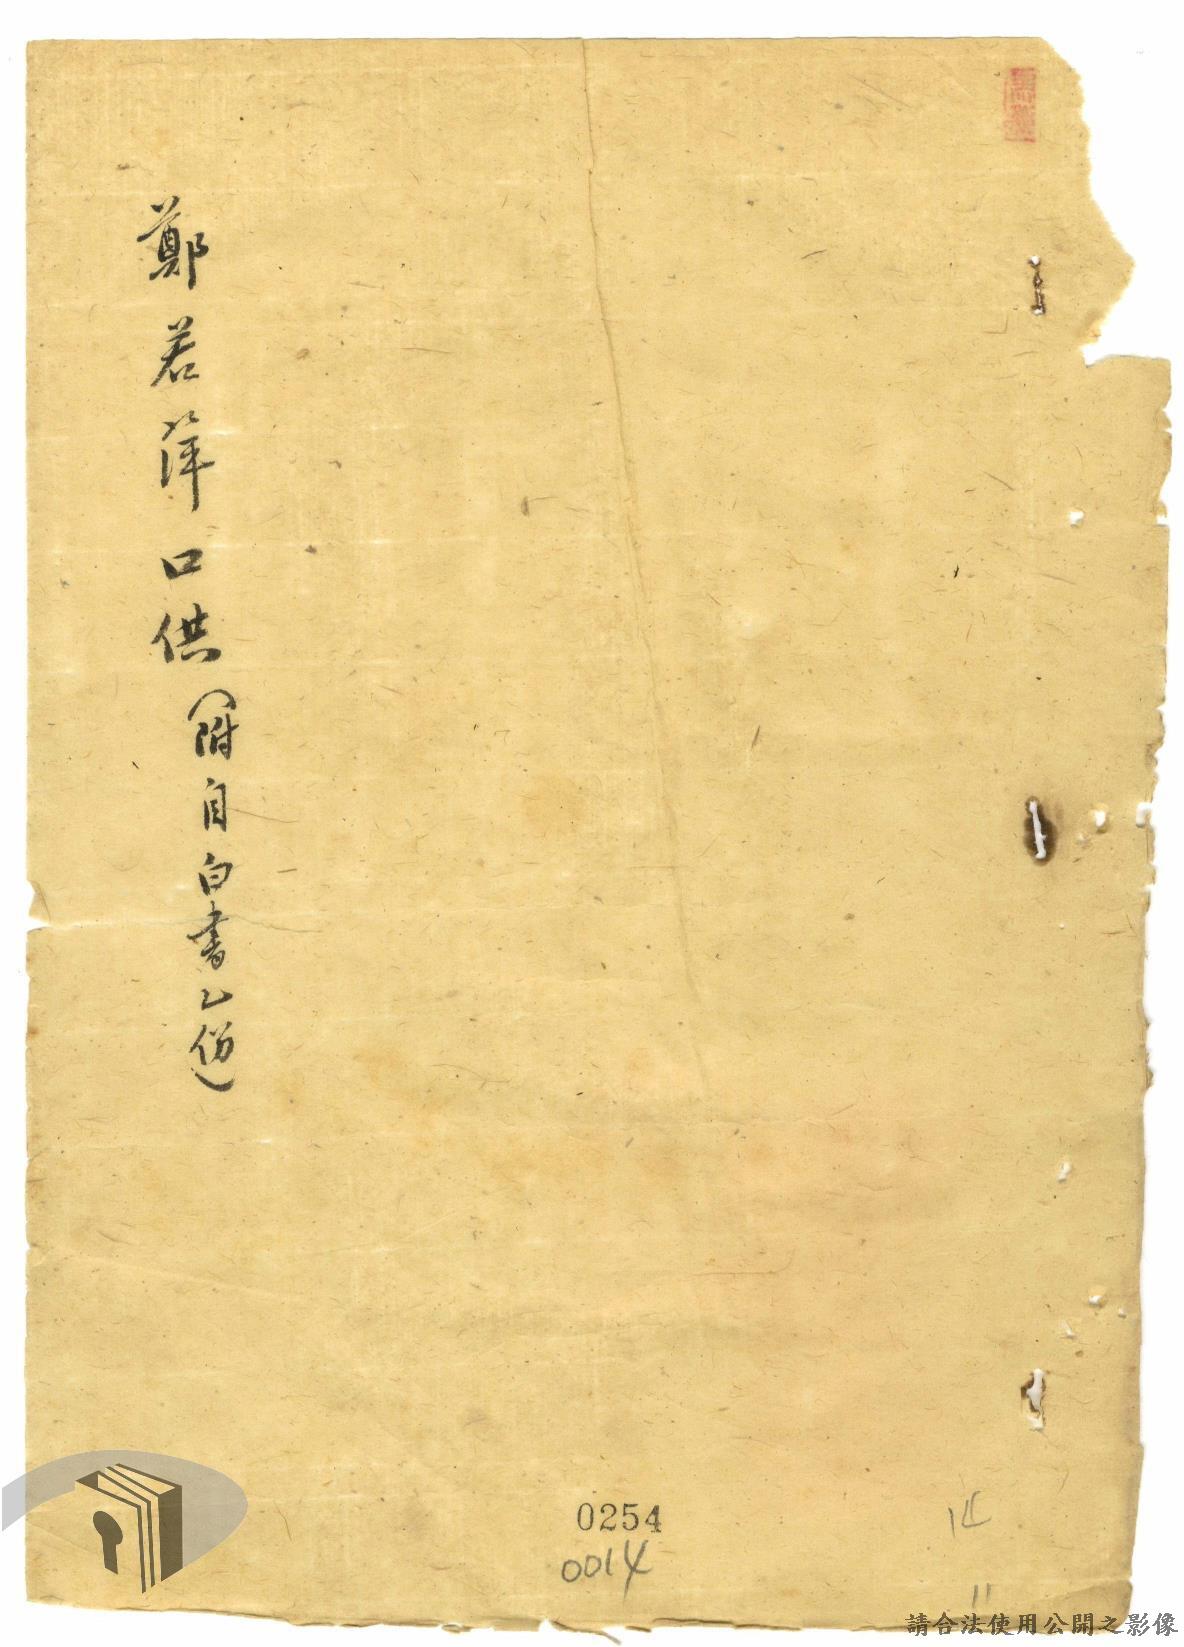 鄭若萍口供(附自白書乙份)
0254
0014
請合法使用公開之影像